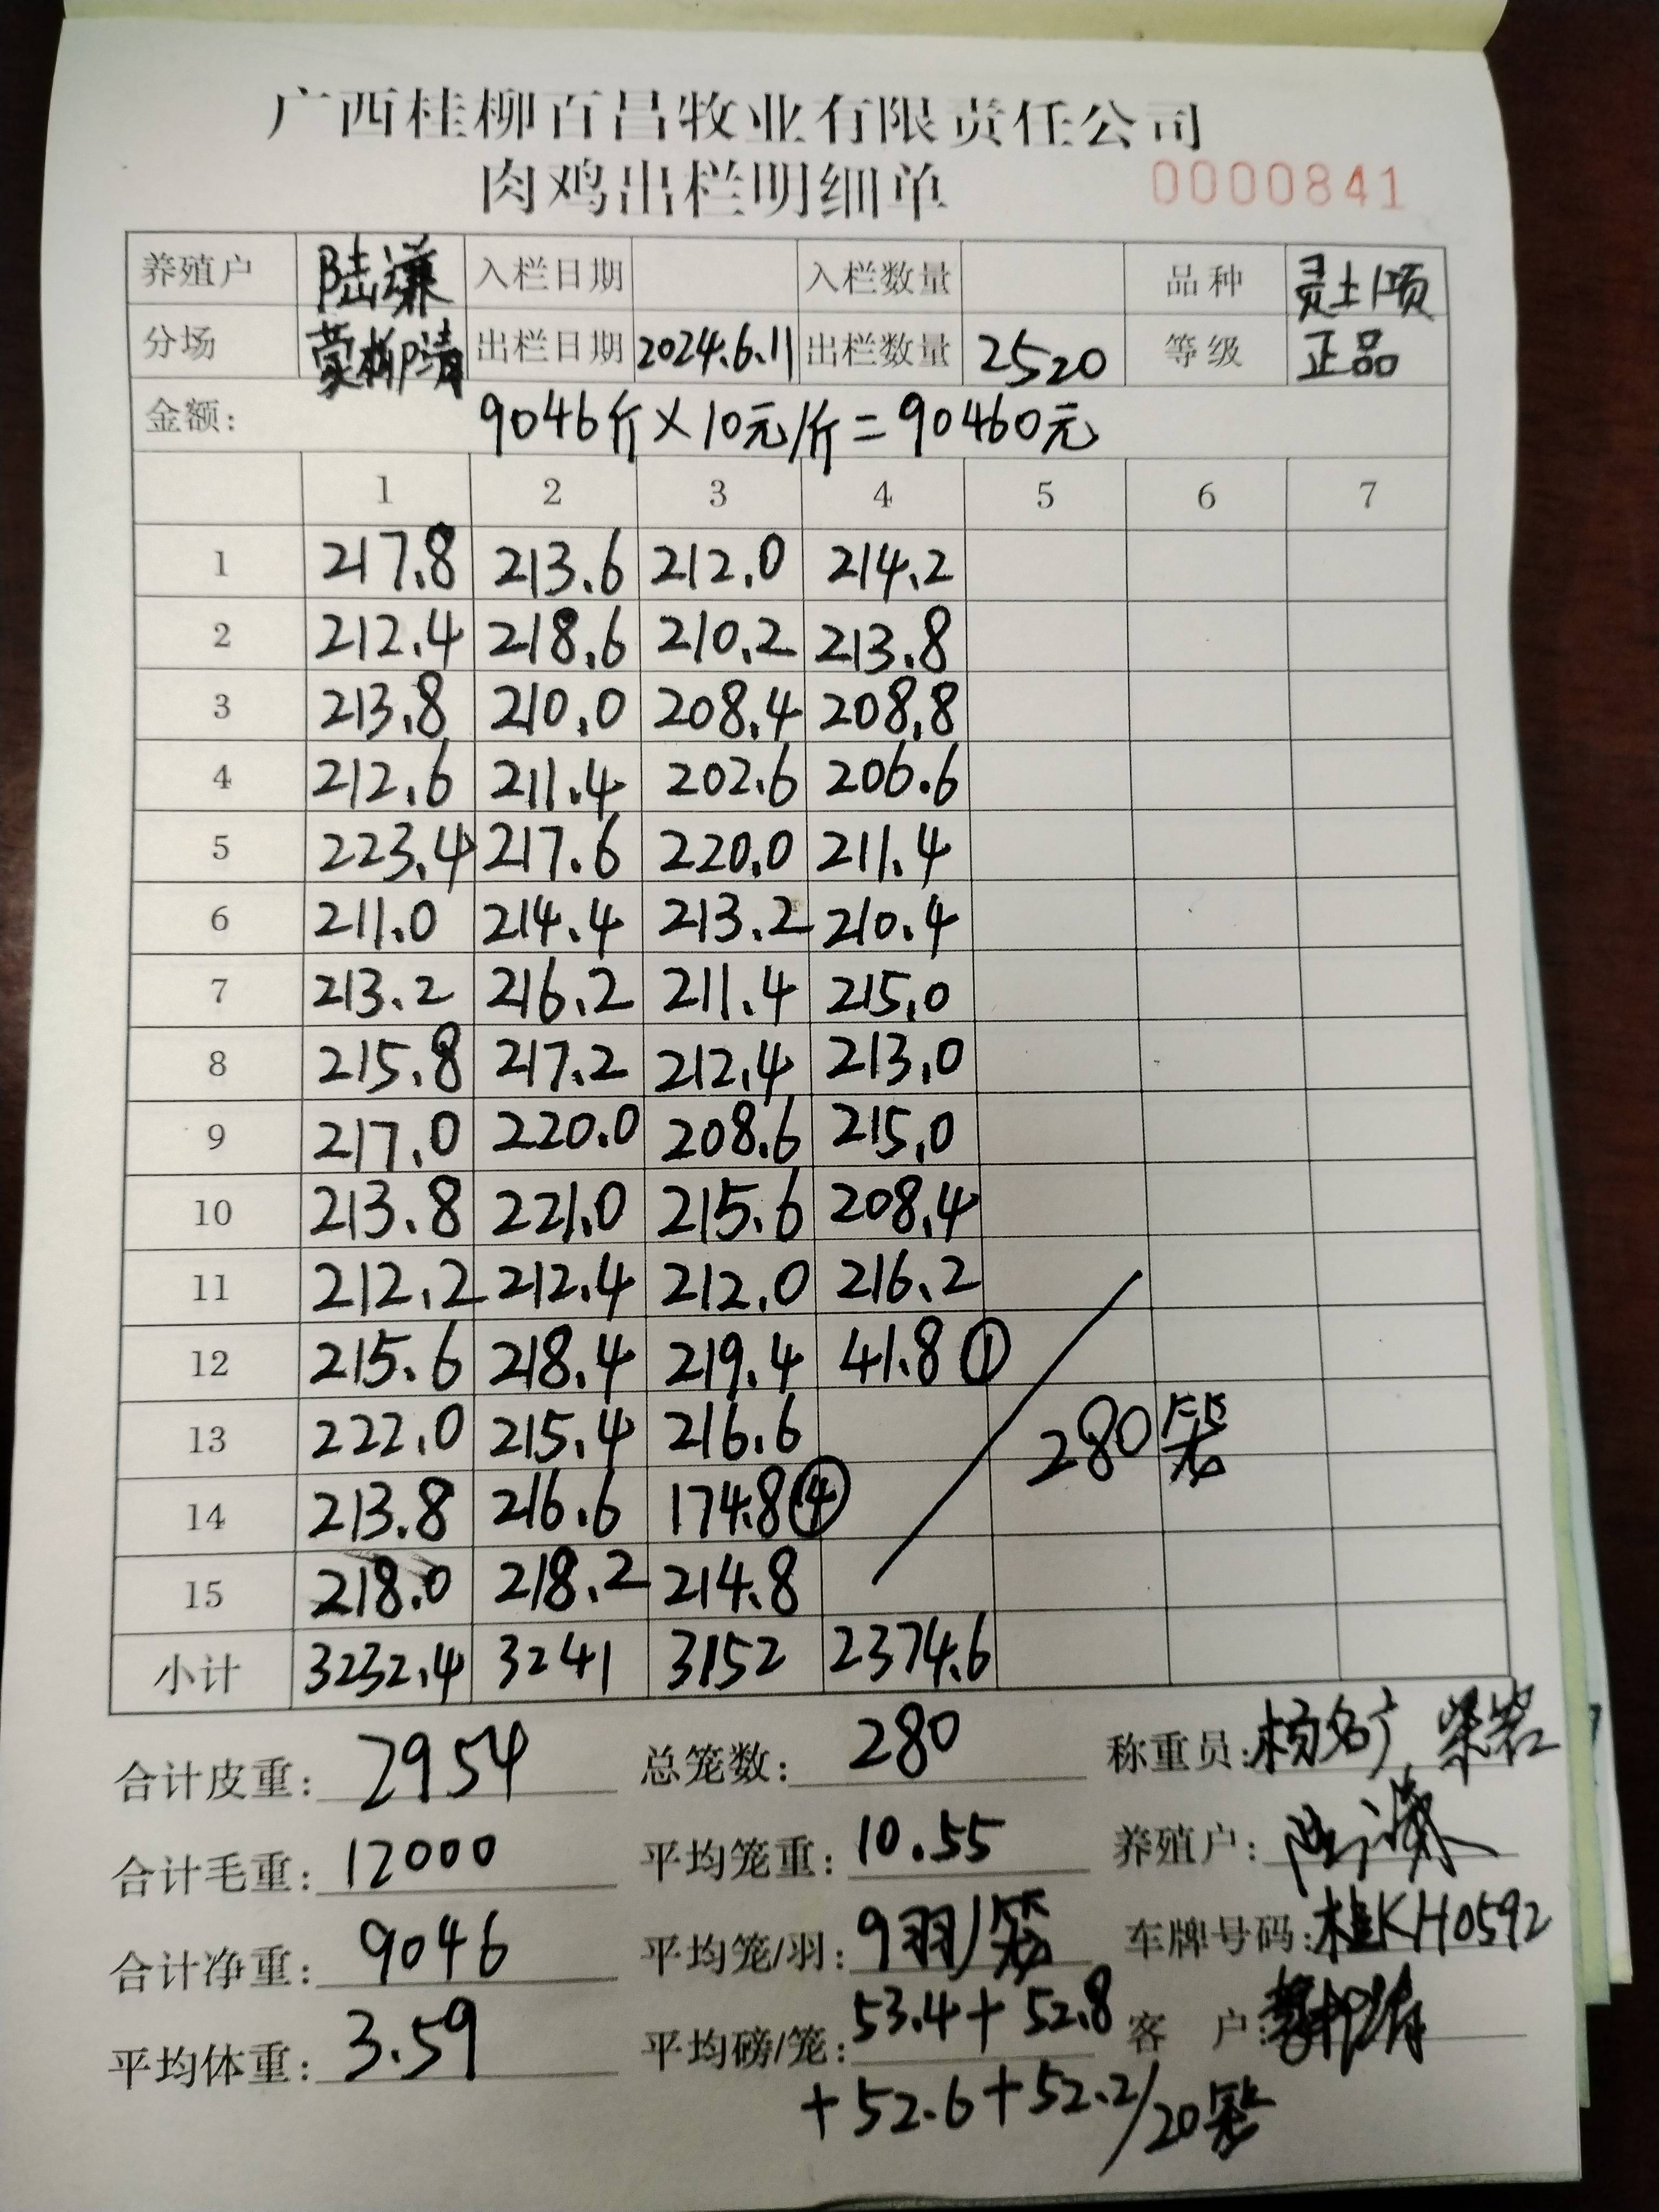 广西桂柳百昌牧业有限责任公司
肉鸡出栏明细单 0000841
养殖户 陆谦 入栏日期 入栏数量 品种 灵土1项
分场 蒙柳清 出栏日期 2024.6.11 出栏数量 2520 等级 正品
金额: 9046斤×10元/斤=90460元
1 2 3 4 5 6 7
1 217.8 213.6 212.0 214.2
2 212.4 218.6 210.2 213.8
3 213.8 210.0 208.4 208.8
4 212.6 211.4 202.6 206.6
5 223.4 217.6 220.0 211.4
6 211.0 214.4 213.2 210.4
7 213.2 216.2 211.4 215.0
8 215.8 217.2 212.4 213.0
9 217.0 220.0 208.6 215.0
10 213.8 221.0 215.6 208.4
11 212.2 212.4 212.0 216.2
12 215.6 218.4 219.4 41.8 ①
13 222.0 215.4 216.6 280笼
14 213.8 216.6 174.8 ④
15 218.0 218.2 214.8
小计 3232.4 3241 3152 2374.6
合计皮重: 2954 总笼数: 280 称重员: 杨名广
合计毛重: 12000 平均笼重: 10.55 养殖户: 陆谦
合计净重: 9046 平均笼/羽: 9羽/笼 车牌号码: 桂KH0592
平均体重: 3.59 平均磅/笼: 53.4+52.8 客户:
+52.6+52.2/20笼